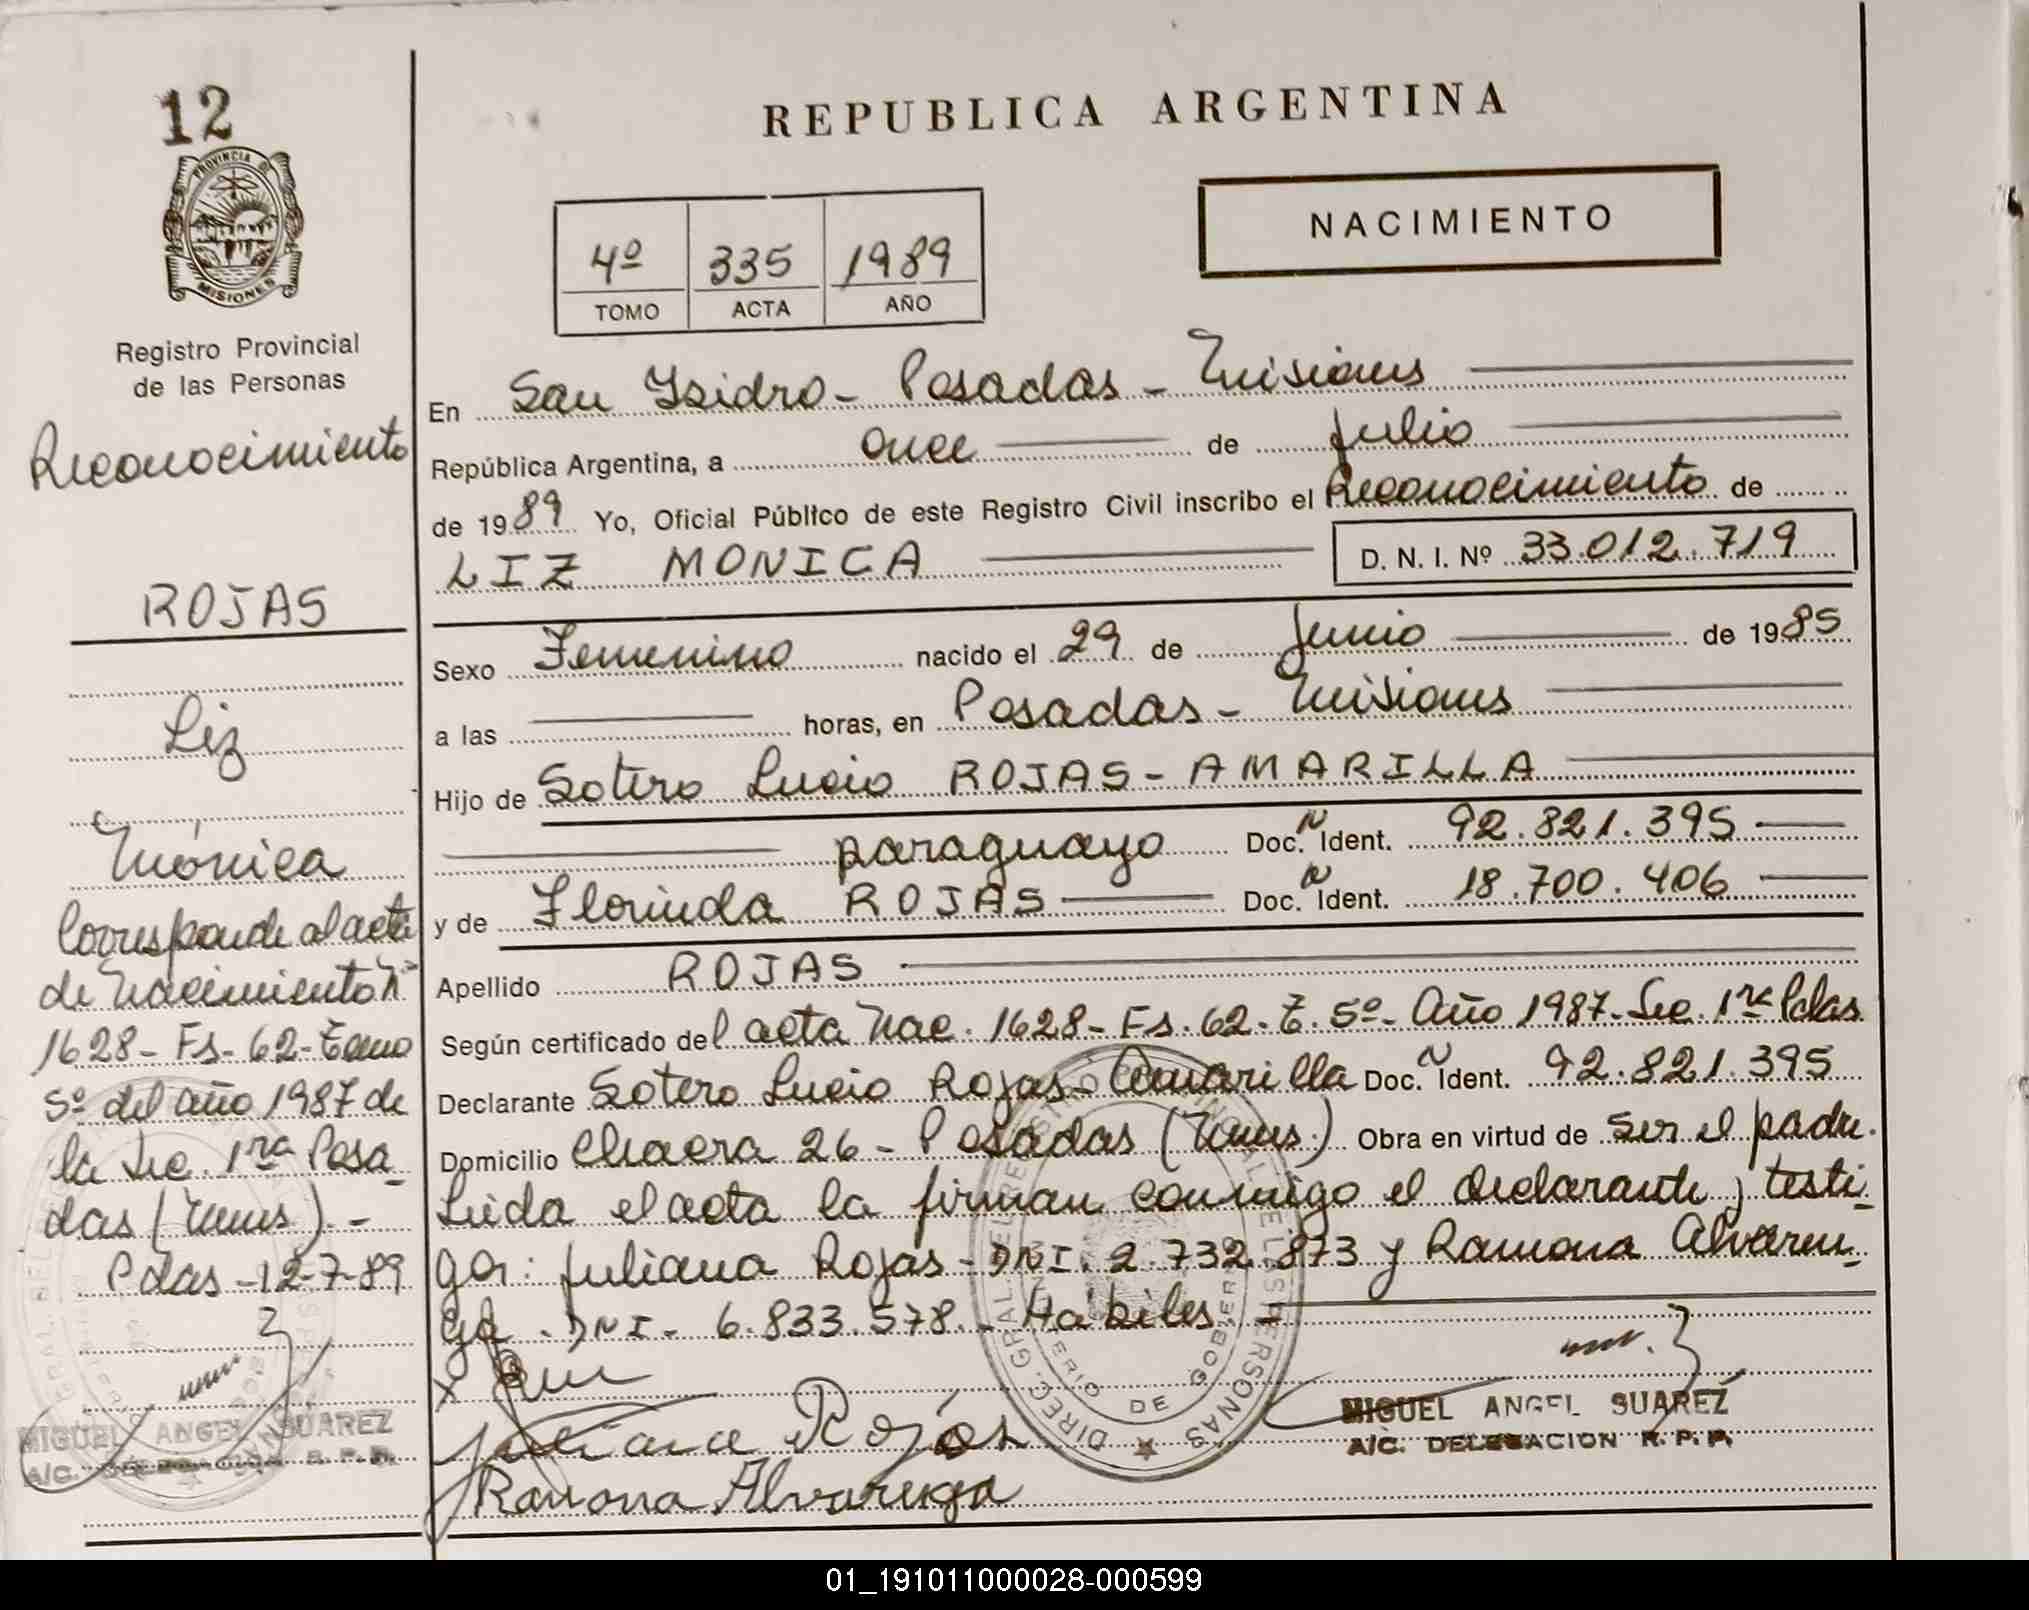 12
PROVINCIA DE
MISIONES
Registro Provincial
de las Personas
Reconocimiento
ROJAS
Liz
Mónica
Corresponde al acta
de Nacimiento Nº
1628 - Fs - 62 - Tomo
5º del año 1987 de
la Sec. 1ra Posa
das (Mnes). -
Pdas - 12-7-89
MIGUEL ANGEL SUAREZ
A/C. DELEGACION R. P. P.
REPUBLICA ARGENTINA
NACIMIENTO
4º 335 1989
TOMO ACTA AÑO
En San Isidro - Posadas - Misiones
República Argentina, a once de julio
de 1989 Yo, Oficial Público de este Registro Civil inscribo el Reconocimiento de
LIZ MONICA D. N. I. Nº 33.012.719
Sexo Femenino nacido el 29 de junio de 1985
a las horas, en Posadas - Misiones
Hijo de Sotero Lucio ROJAS - AMARILLA
paraguayo Doc. N Ident. 92.821.395
y de Florinda ROJAS Doc. N Ident. 18.700.406
Apellido ROJAS
Según certificado del acta Nac. 1628 - Fs. 62 - T. 5º - Año 1987 - Sec. 1ra Pdas.
Declarante Sotero Lucio Rojas - Amarilla Doc. N Ident. 92.821.395
Domicilio Chacra 26 - Posadas (Mnes.) Obra en virtud de ser el padre.
Leida el acta la firman conmigo el declarante y testi
gos: Juliana Rojas - DNI. 2.732.873 y Ramona Alvaren
ga - DNI - 6.833.578. - Habiles. -
x
Juliana Rojas
Ramona Alvarenga
MIGUEL ANGEL SUAREZ
A/C. DELEGACION R. P. P.
01_191011000028-000599